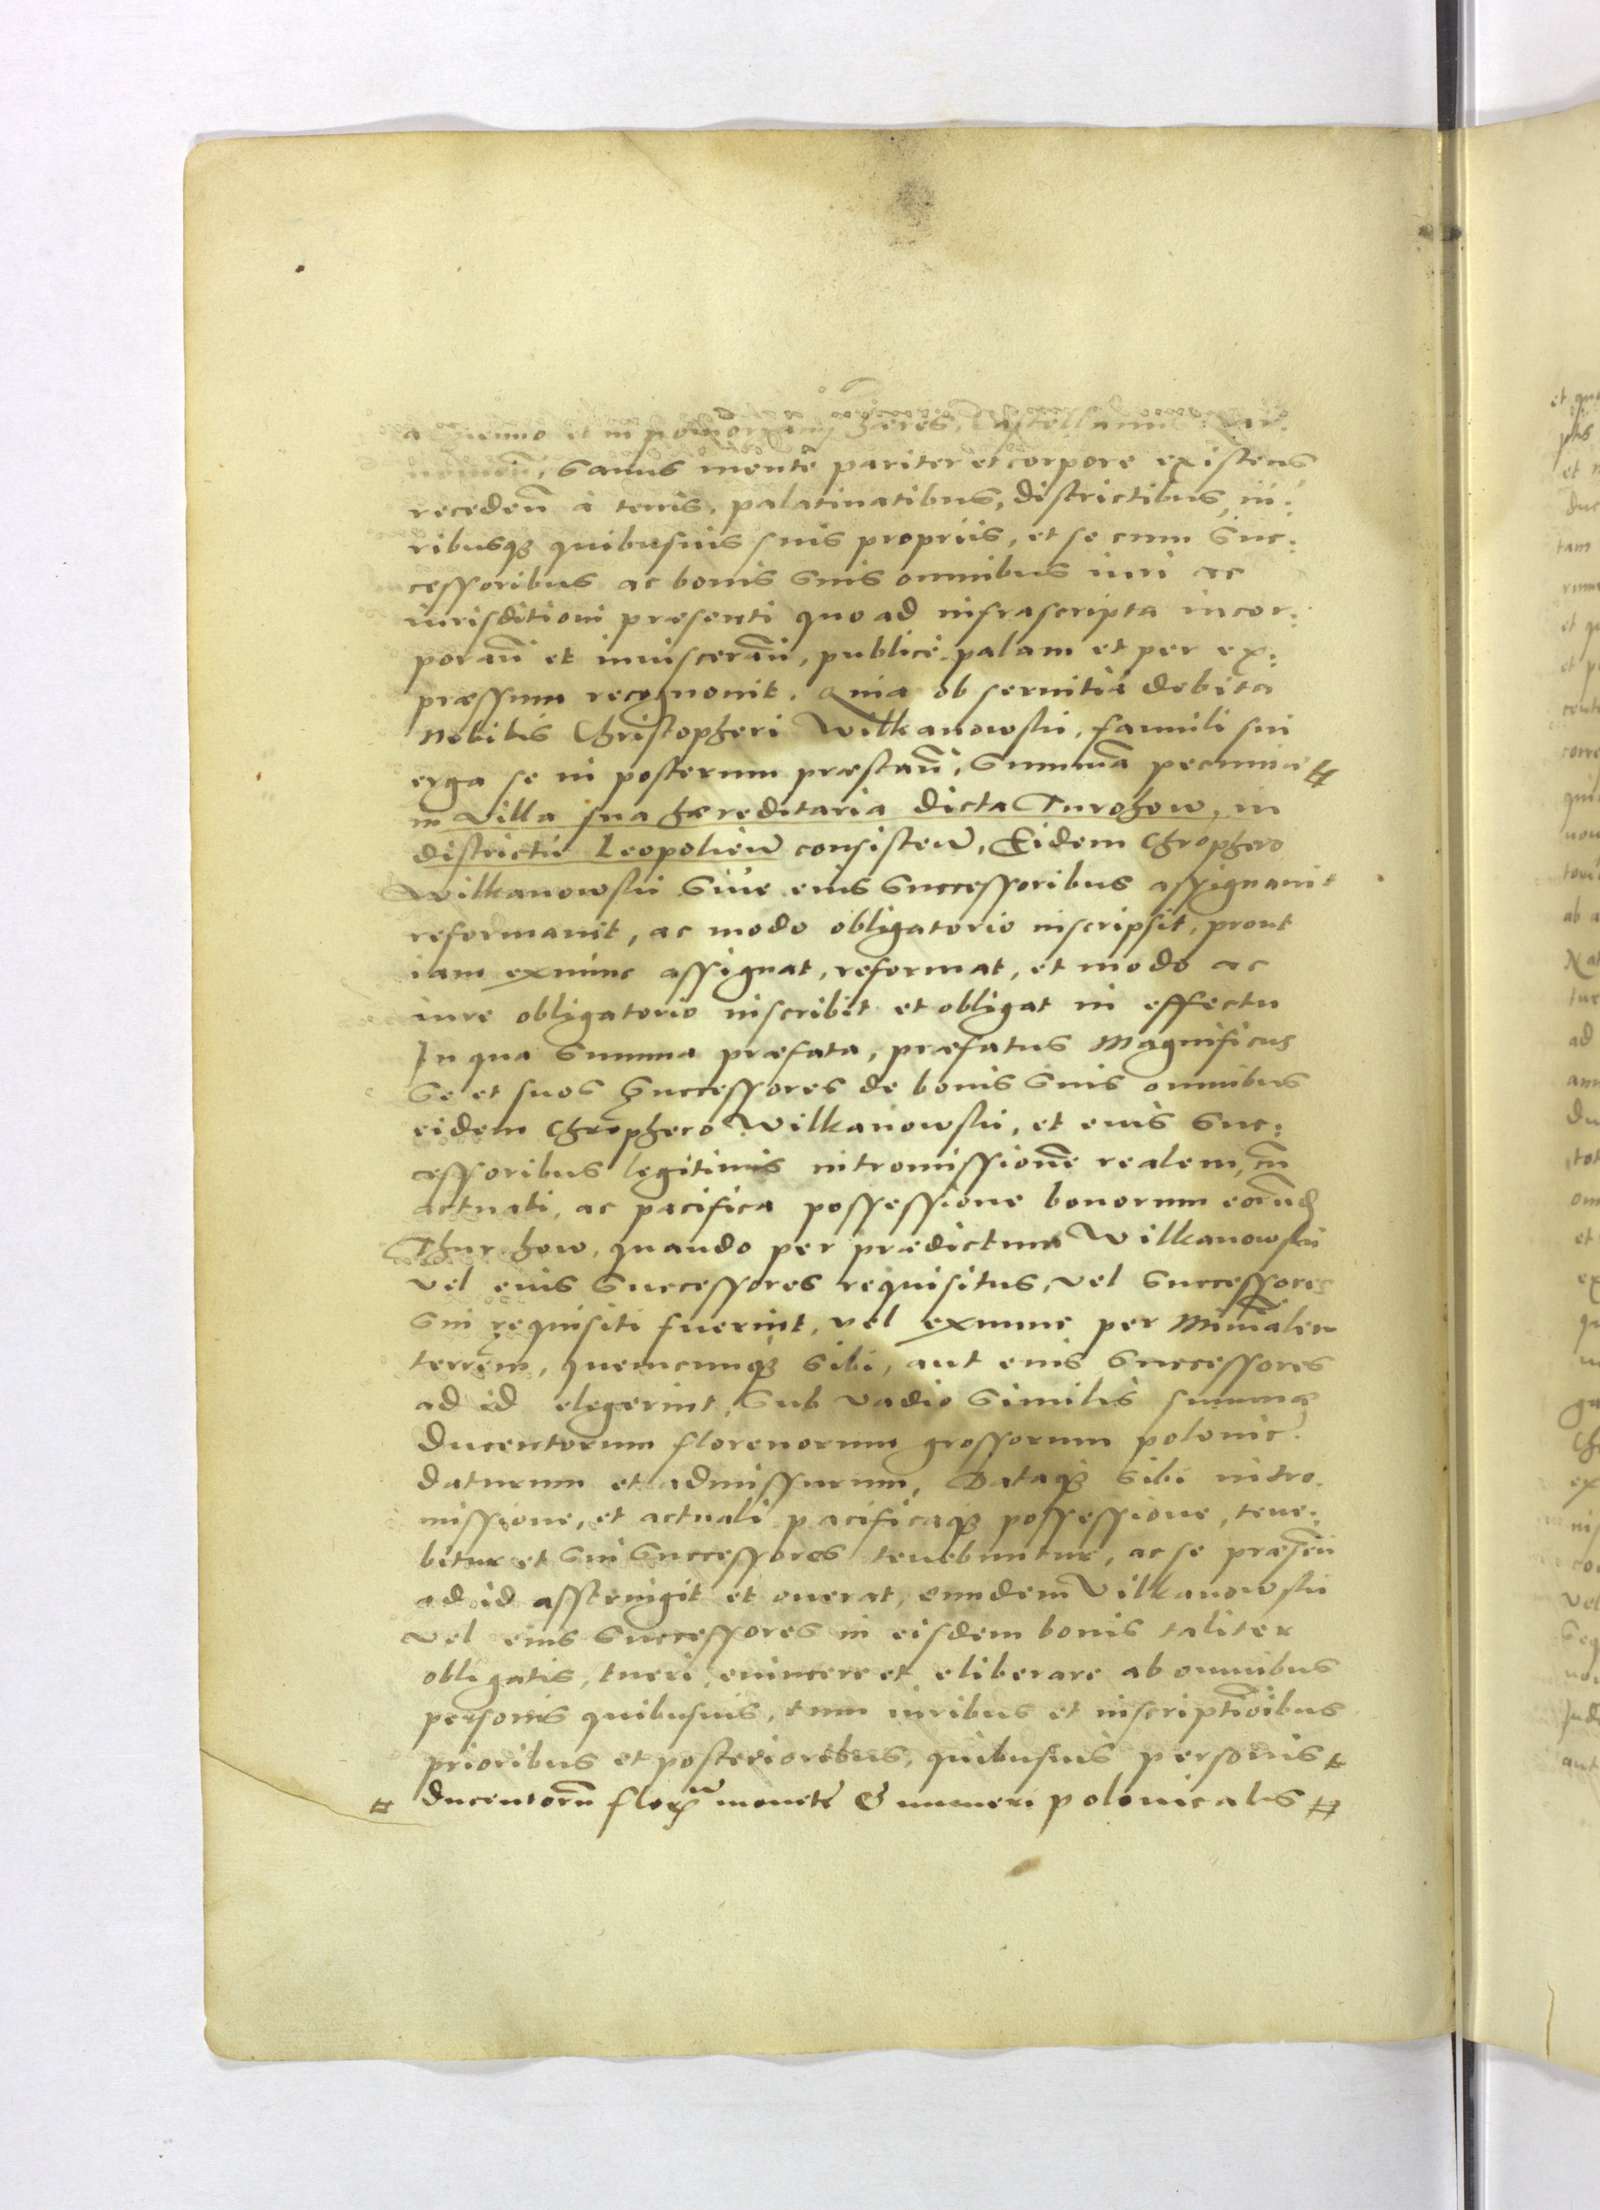 a et in haeres, Castellanus
sanus mente pariter et corpore existens
receden̄ a terris, palatinatibus, districtibus, iu:
ribusq3 quibusuis suis propriis, et se cum suc:
cessoribus ac bonis suis omnibus iuri ac
iurisditioni praesenti quo ad infrascripta incor:
poran̄ et inuisceran̄, publice palam et per ex:
praessum recognouit. Quia ob seruitia debita
Nobilis Christopheri Wilkanowskii, famuli sui
erga se in posterum praestan̄, summā pecuniae #
in villa sua haereditaria dicta Turohow, in
districtu Leopolien̄ consisten̄, Eidem Chrophero
Wilkanowskii siue eius successoribus assignauit
reformauit, ac modo obligatorio inscripsit, prout
iam exnunc assignat, reformat, et modo ac
iure obligatorio inscribit et obligat in effectu
In qua summa praefata, praefatus Magnificus
se et suos successores de bonis suis omnibus
eidem Chrophero Wilkanowskii, et eius suc:
cessoribus legitimis intromissionē realem, cū
actuali, ac pacifica possessione bonorum eorūd
Thurhow, quando per praedictum Wilkanowskii
vel eius successores requisitus, vel successores
sui requisiti fuerint, vel exnunc per Minrālem
terrēm, quemcunq3 sibi, aut eius successores
ad id elegerint, sub vadio similis summae
ducentorum florenorum grossorum polonic:
daturum et admissurum, Dataq3 sibi intro
missione, et actuali pacificaq3 possessione, tene:
bitur et sui successores tenebuntur, ac se praesen̄
ad id asstringit et onerat, eundem Vilkanowskii
vel eius successores in eisdem bonis taliter
obligatis, tueri, euincere et eliberare ab omnibus
personis quibusuis, tum iuribus et inscriptioībus
prioribus et posterioribus, quibusuis personis #
# ducentorū flor̄ monetae & numeri polonicalis #